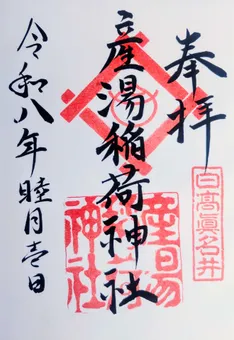 奉拝
日高真名井
産湯稲荷神社
令和八年睦月壱日